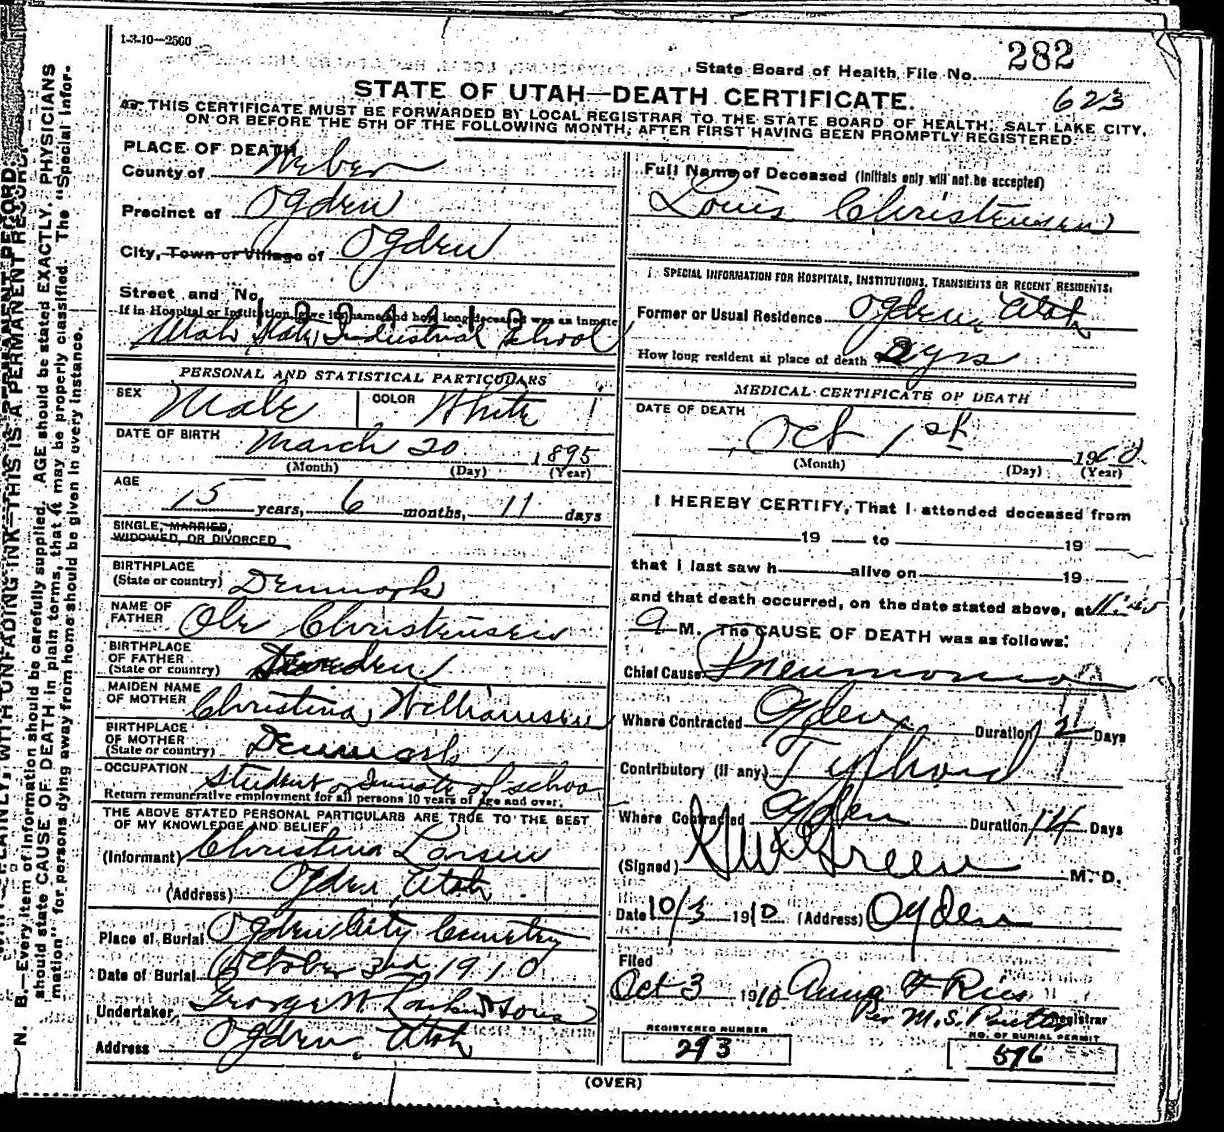 1-3-10—2500
282
State Board of Health File No.
623
STATE OF UTAH—DEATH CERTIFICATE.
THIS CERTIFICATE MUST BE FORWARDED BY LOCAL REGISTRAR TO THE STATE BOARD OF HEALTH, SALT LAKE CITY,
ON OR BEFORE THE 5TH OF THE FOLLOWING MONTH, AFTER FIRST HAVING BEEN PROMPTLY REGISTERED.
PLACE OF DEATH
County of Weber
Precinct of Ogden
City, Town or Village of Ogden
Street and No.
If in Hospital or Institution, give its name and how long deceased was an inmate
Utah State Industrial School
PERSONAL AND STATISTICAL PARTICULARS
SEX Male COLOR White
DATE OF BIRTH March 20 1895
(Month) (Day) (Year)
AGE
15 years, 6 months, 11 days
SINGLE, MARRIED,
WIDOWED, OR DIVORCED
BIRTHPLACE
(State or country) Denmark
NAME OF
FATHER Ole Christensen
BIRTHPLACE
OF FATHER
(State or country)
MAIDEN NAME
OF MOTHER Christina Williamsen
BIRTHPLACE
OF MOTHER
(State or country) Denmark
OCCUPATION Student or Inmate of School
Return remunerative employment for all persons 10 years of age and over.
THE ABOVE STATED PERSONAL PARTICULARS ARE TRUE TO THE BEST
OF MY KNOWLEDGE AND BELIEF
(Informant) Christina Larsen
(Address) Ogden, Utah
Place of Burial Ogden City Cemetery
Date of Burial October 3rd 1910
Undertaker, George W. Larkin & Sons
Address Ogden, Utah
Full Name of Deceased (Initials only will not be accepted)
Louis Christensen
SPECIAL INFORMATION FOR HOSPITALS, INSTITUTIONS, TRANSIENTS OR RECENT RESIDENTS:
Former or Usual Residence Ogden, Utah
How long resident at place of death 2 yrs
MEDICAL CERTIFICATE OF DEATH
DATE OF DEATH
Oct 1st 1910
(Month) (Day) (Year)
I HEREBY CERTIFY, That I attended deceased from
19 to 19
that I last saw h alive on 19
and that death occurred, on the date stated above, at
A M. The CAUSE OF DEATH was as follows:
Chief Cause Pneumonia
Where Contracted Ogden Duration 12 Days
Contributory (if any) Typhoid
Where Contracted Ogden Duration 14 Days
(Signed) Green M. D.
Date 10/3 1910 (Address) Ogden
Filed
Oct 3 1910 Anna F Ries
Per M. S. Registrar
REGISTERED NUMBER
293
NO. OF BURIAL PERMIT
596
(OVER)
N. B.—Every item of information should be carefully supplied. AGE should be stated EXACTLY. PHYSICIANS
should state CAUSE OF DEATH in plain terms, that it may be properly classified. The "Special Infor-
mation" for persons dying away from home should be given in every instance.
WITH UNFADING INK—THIS IS A PERMANENT RECORD